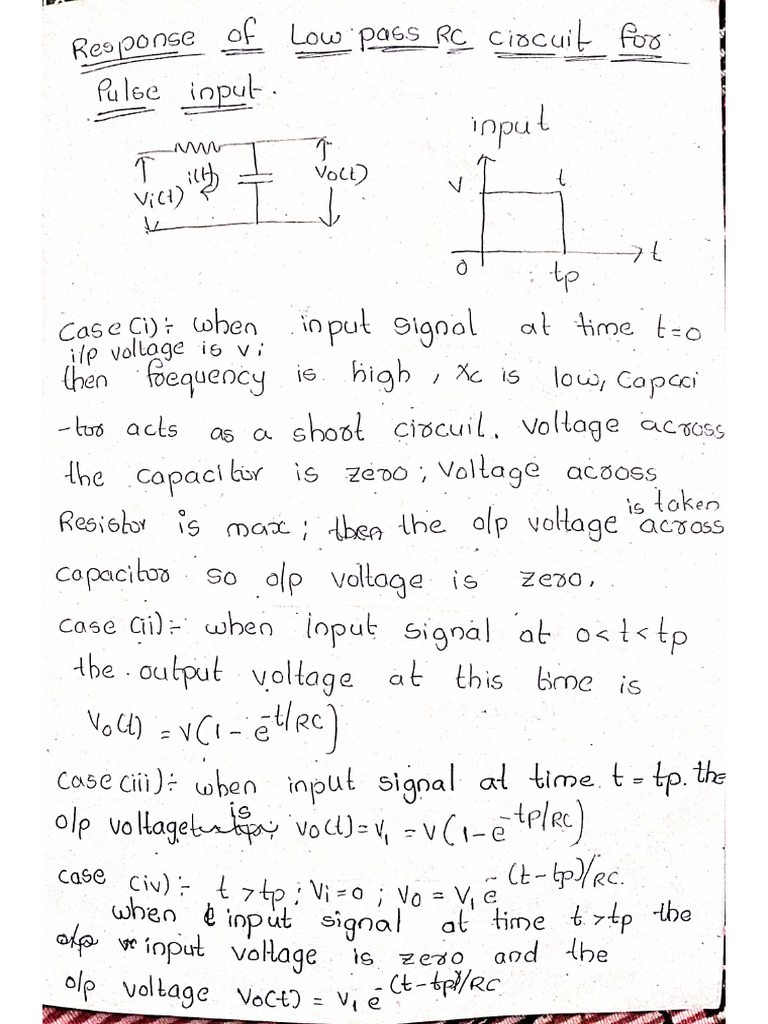 Response of Low pass RC circuit for
Pulse input.
input
Vi(t) i(t) Vo(t)
V t
0 tp t
case(i):- when input signal at time t=0
i/p voltage is v;
then frequency is high, Xc is low, Capaci
-tor acts as a short circuit. Voltage across
the capacitor is zero; Voltage across
Resistor is max; then the o/p voltage is taken across
capacitor so o/p voltage is zero.
case(ii):- when input signal at 0<t<tp
the output voltage at this time is
Vo(t) = V(1-e^-t/RC)
case(iii):- when input signal at time t=tp. the
o/p voltage is Vo(t)=V1 = V(1-e^-tp/RC)
case (iv):- t>tp; Vi=0; Vo = V1 e^-(t-tp)/RC.
when input signal at time t>tp the
input voltage is zero and the
o/p voltage Vo(t) = V1 e^-(t-tp)/RC